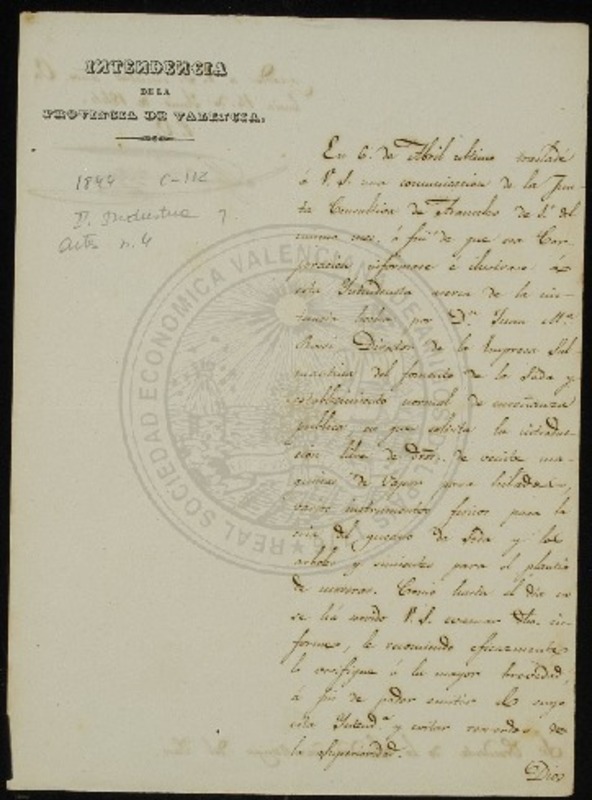 INTENDENCIA
DE LA
PROVINCIA DE VALENCIA.
1844 C-112
P. Industria
Artes n. 4
En 6. de Abril ultimo trasladé
á V. S. una comunicacion de la Jun-
ta Consultiva de Aranceles de 1.º del
mismo mes, á fin de que esa Cor-
poracion informase é ilustrase á
esta Intendencia acerca de la ins-
tancia hecha por Dn. Juan Mª.
Director de la Empresa
del fomento de la Seda y
establecimiento normal de enseñanza
publica, en que solicita la introduc-
cion libre de dros. de veinte ma-
quinas de vapor para hilados,
varios instrumentos fisicos para la
cria del gusano de seda y los
arboles y simientes para el plantio
de moreras. Como hasta el dia no
se ha servido V. S. evacuar dho. in-
forme, le recomiendo eficazmente
lo verifique á la mayor brevedad,
á fin de poder emitir el suyo
esta Intendª. y evitar recuerdos de
la Superioridad.
Dios
REAL SOCIEDAD ECONOMICA VALENCIANA DE AMIGOS DEL PAIS